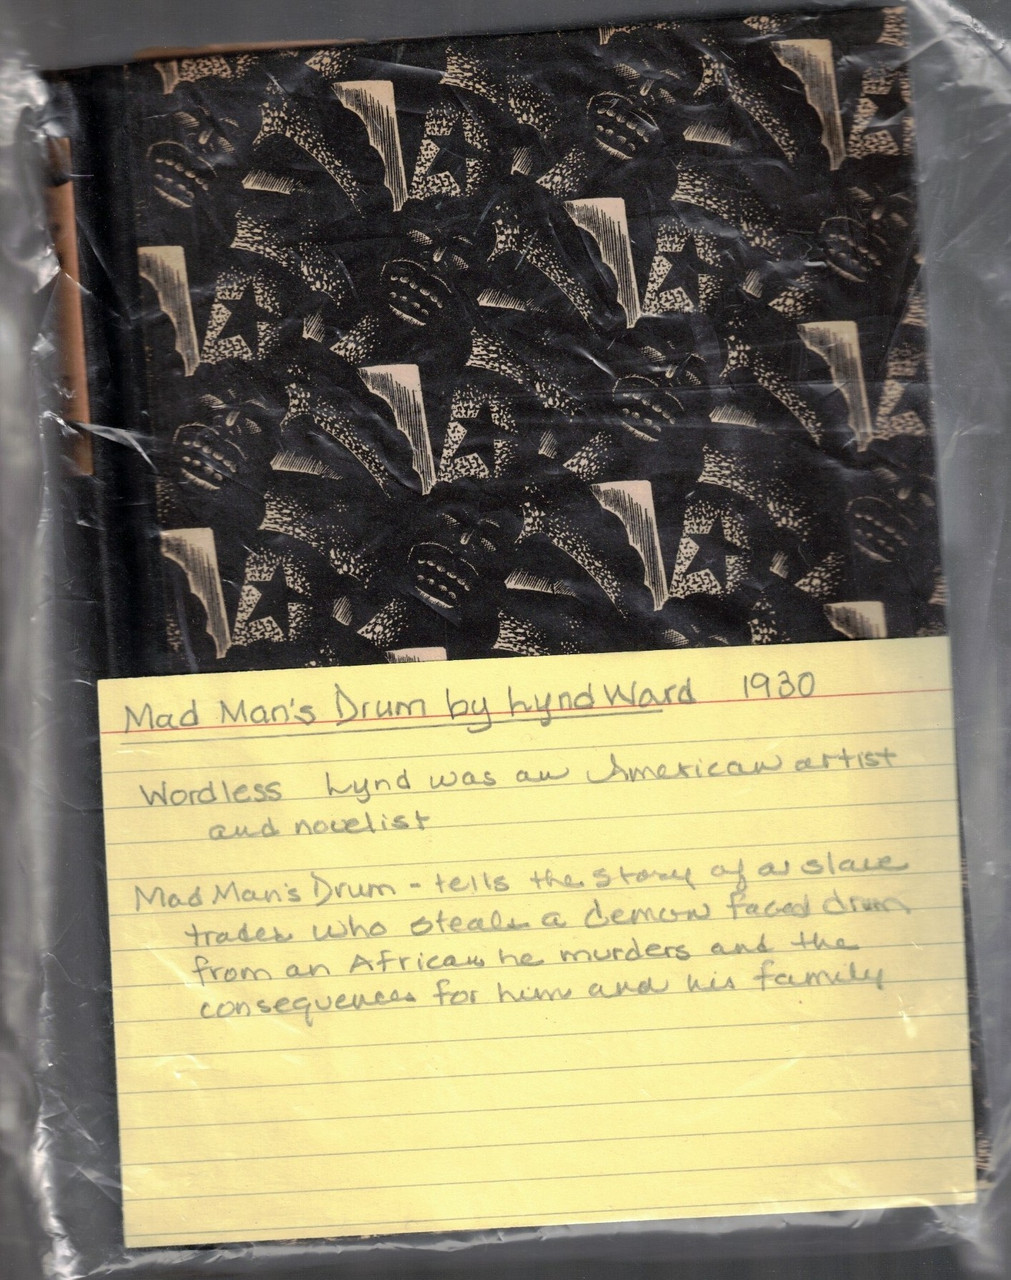 Mad Man's Drum by Lynd Ward 1930
Wordless Lynd was an American artist
and novelist
Mad Man's Drum - tells the story of a slave
trader who steals a demon faced drum
from an African he murders and the
consequences for him and his family